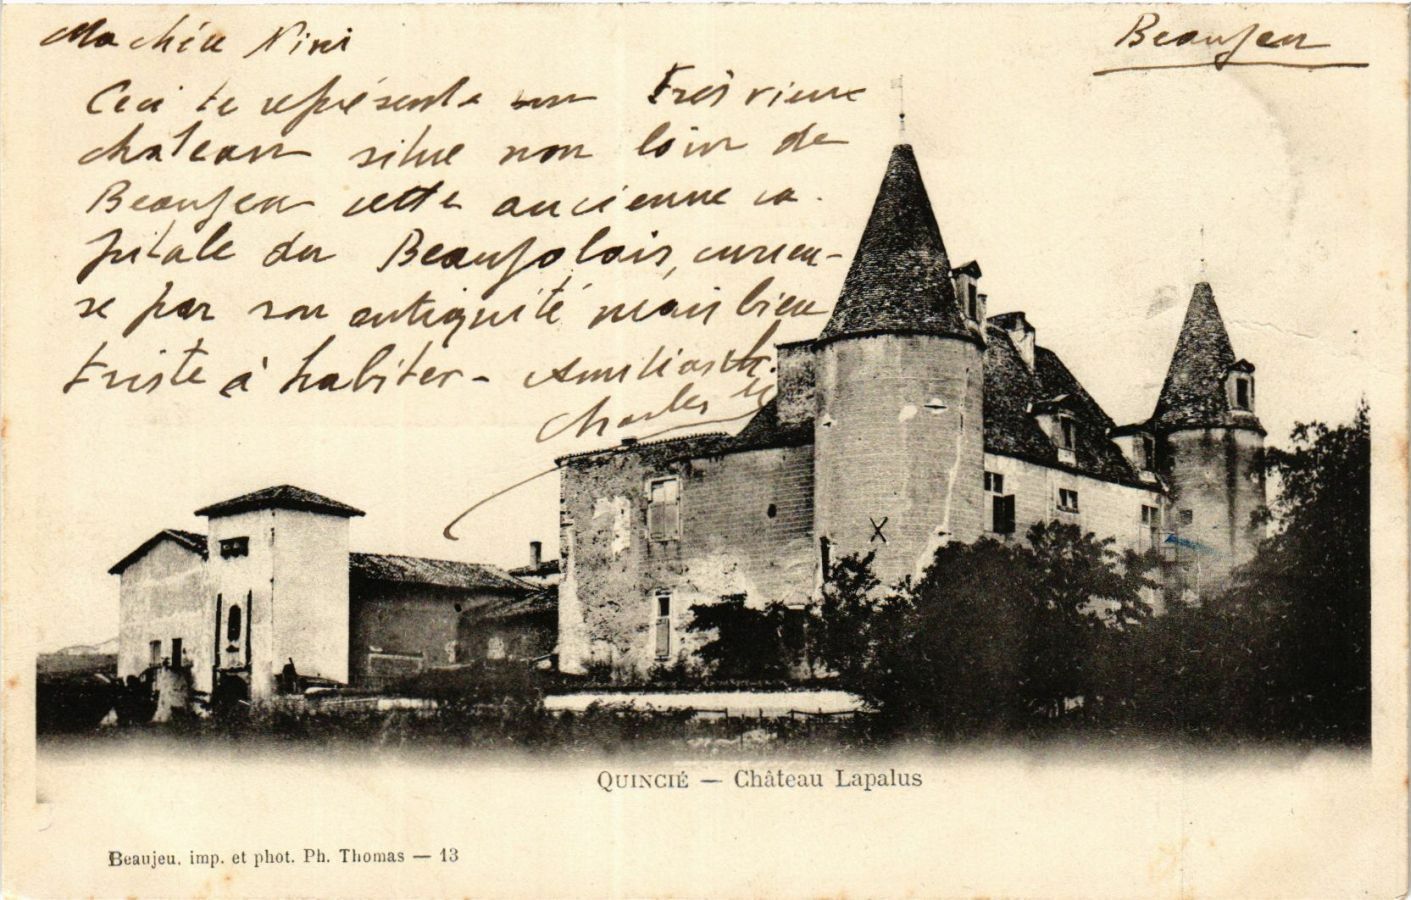 Beaujeu
Ma chère Nini
Ceci te représente un très vieux
chateau situé non loin de
Beaujeu cette ancienne ca
pitale du Beaujolais, curieu-
se par son antiquité mais bien
triste à habiter - Amitiés
Charles
QUINCIÉ — Château LAPALUS
Beaujeu, imp. et phot. Ph. Thomas — 13